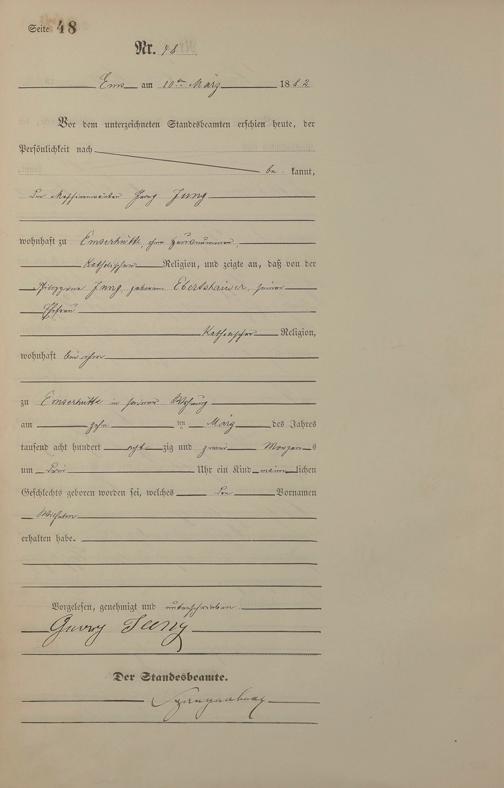 Seite 48
Nr. 48
Ems am 10ten März 1882
Vor dem unterzeichneten Standesbeamten erschien heute, der
Persönlichkeit nach
be kannt,
der Georg Jung
wohnhaft zu Emserhütte, ohne Hausnummer
katholischer Religion, und zeigte an, daß von der
Philippine Jung, geborenen Ebertshäuser, seiner
Ehefrau
katholischer Religion,
wohnhaft bei ihm
zu Emserhütte in seiner Wohnung
am zehn ten März des Jahres
tausend acht hundert acht zig und zwei Morgen s
um drei Uhr ein Kind männ lichen
Geschlechts geboren worden sei, welches den Vornamen
Wilhelm
erhalten habe.
Vorgelesen, genehmigt und unterschrieben
Georg Jung
Der Standesbeamte.